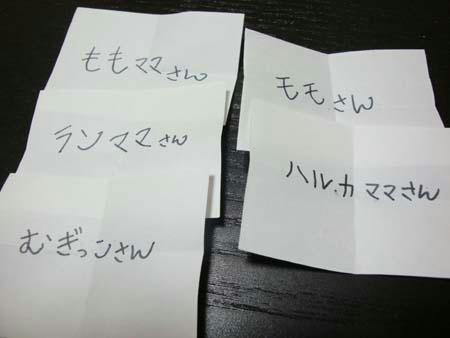 ももママさん
ランママさん
むぎっこさん
モモさん
ハル.カママさん